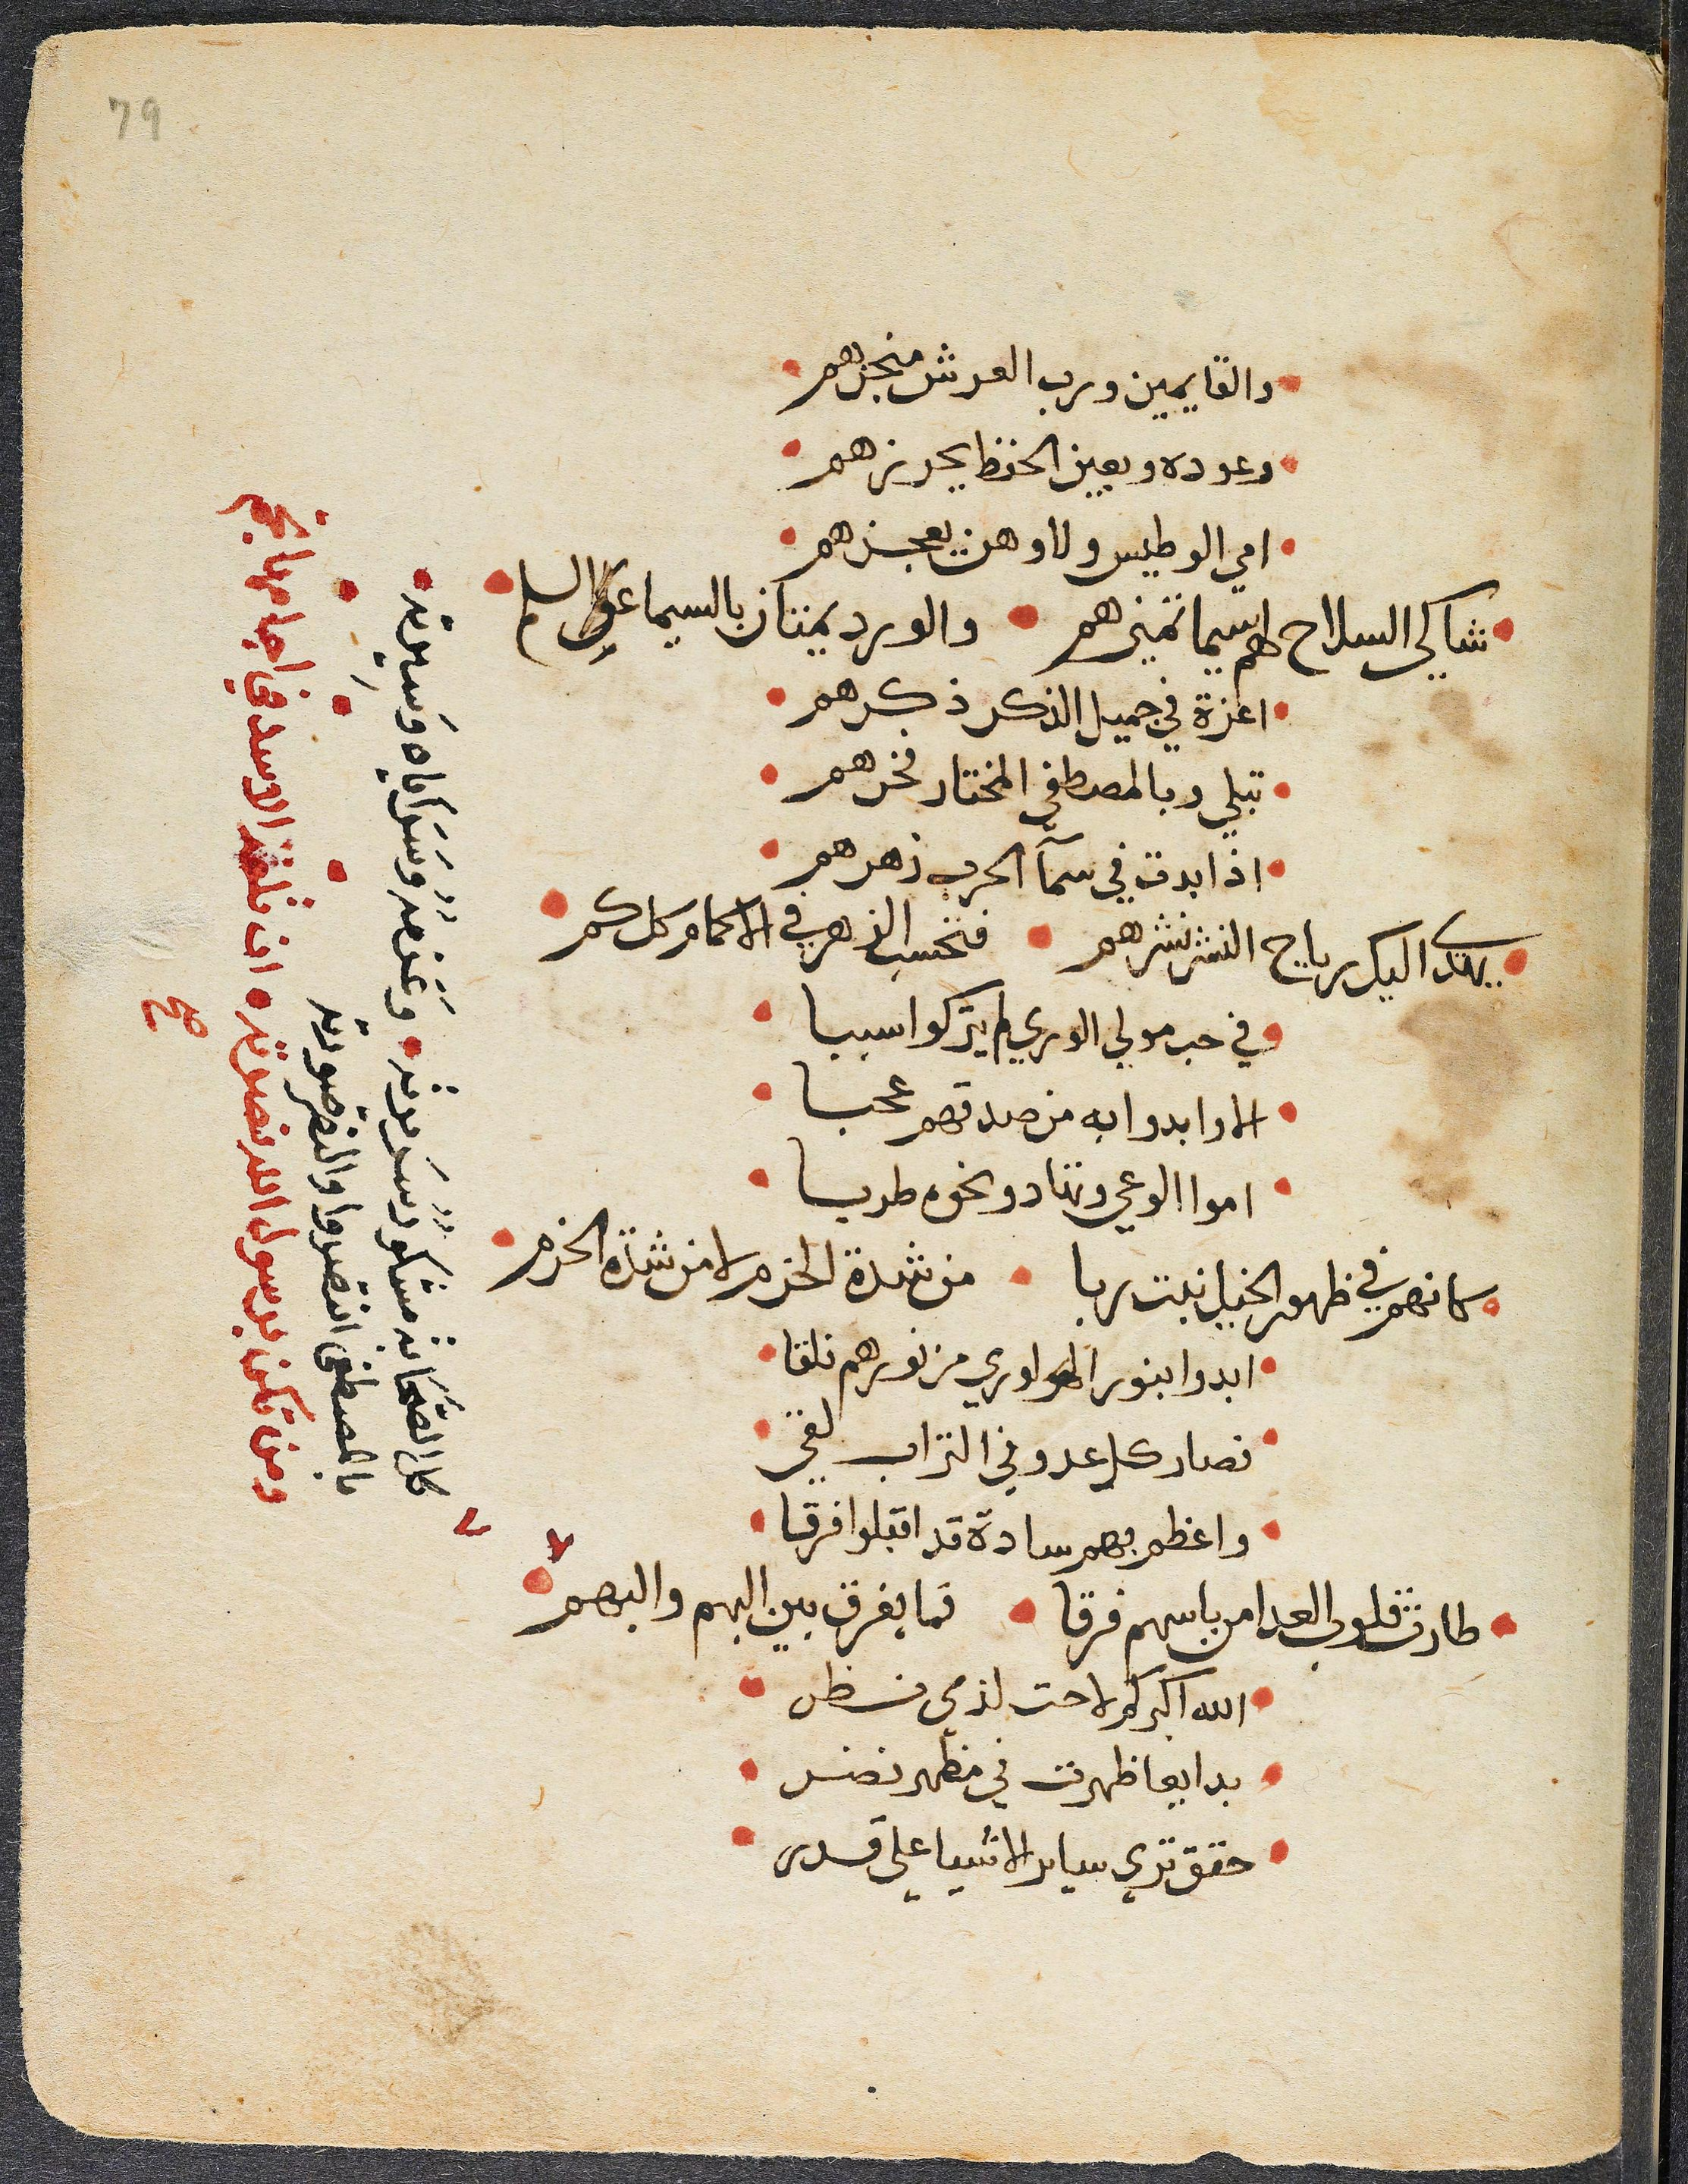 79
والقايمين ورب العرش منجزهم
وعوده وبعين الحفظ يحرزهم
امي الوطيس ولا وهن يعجزهم
شاكي السلاح لهم سيما تميزهم والورد يمتاز بالسيما السلم
اعزة في جميل الذكر ذكرهم
تبلي وبالمصطفي المختار فخرهم
اذا بدت في سمآ الحرب زهرهم
يهدي اليك رياح النشر نشرهم فتحسب الزهر في الاكمام كل كم
في حب مولي الوري لم يتركوا سببا
الا وابدوا به من صدقهم عجبا
اموا الوعي وتنادو نحوه طربا
كانهم في ظهور الخيل نبت ربا من شدة الحزم لا من شدة الحزم
ابدوا بنور الهوا وري من نورهم فلقا
فصار كل عدو في التراب لقي
واعظم بهم سادة قد اقبلوا فرقا
طارت قلوب العدا من باسهم فرقا فما يفرق بين البهم والبهم
الله اكبر كم لاحت لذي نظر
بدايعا ظهرت في مظهر نضر
حقق تري ساير الاشيا علي قدر
كل الصحابة مشكور سريرته وعزمه وسراياه وسيرته
بالمصطفي انتصروا والنصر صورته
ومن تكن برسول الله نصرته ان تلقه الاسد في اجامها تجم